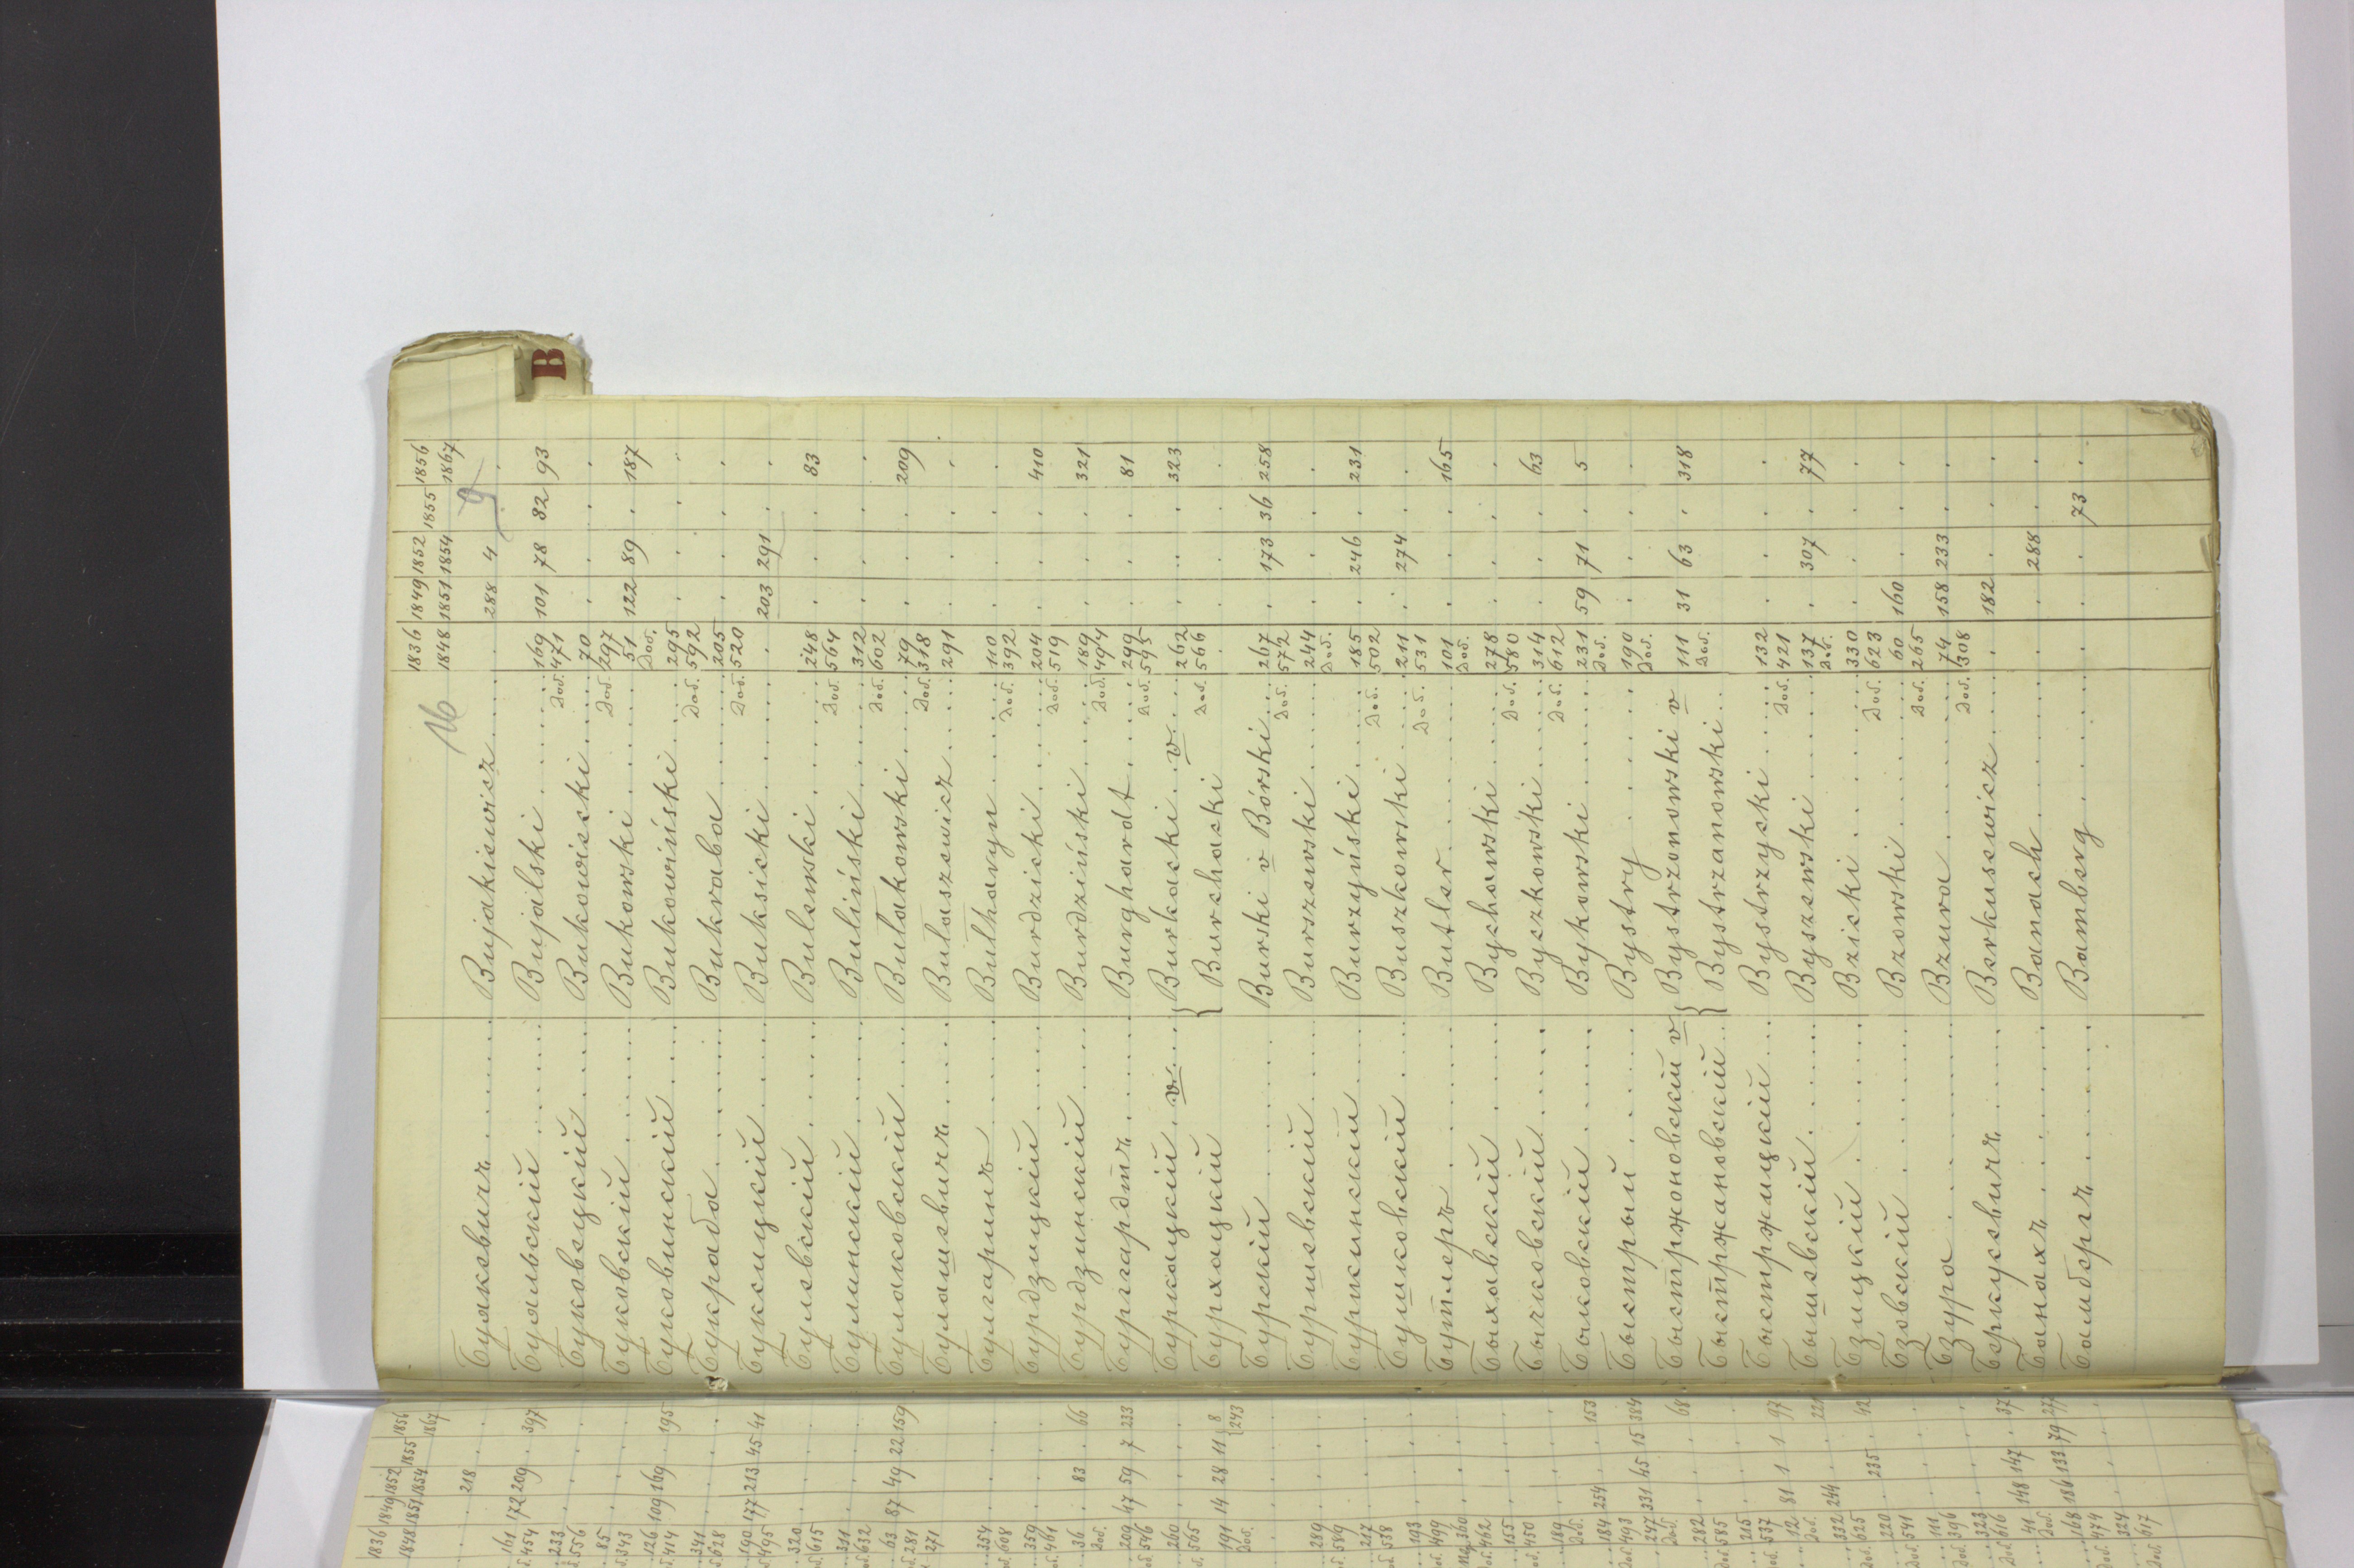 B
16
9
1836 1849 1852 1855 1856
1848 1851 1854 1867
Буякевичъ Bujakiewicz . 288 4 . .
Буяльскій Bujalski 169 101 78 82 93
доб. 471
Буковецкій Bukowiecki 70 . . . .
доб. 297
Буковскій Bukowski 51 122 89 . 187
доб.
Буковинскій Bukowiński 295 . . . .
доб. 592
Букраба Bukraba 205 . . . .
доб. 520
Буксицкій Buksicki . 203 291 . .
Булевскій Bulewski 248 . . . 83
доб. 564
Булинскій Buliński 312 . . . .
доб. 602
Булаковскій Bułakowski 79 . . . 209
доб. 318
Булашевичъ Bułaszewicz 291 . . . .
Булгаринъ Bułharyn 110 . . . .
доб. 392
Бурдзицкій Burdzicki 204 . . . 410
доб. 519
Бурдзинскій Burdziński 189 . . . 321
доб. 494
Бургардтъ Burghardt 299 . . . 81
доб. 595
Буркацкій v Burkacki v 262 . . . 323
доб. 566
Бурхацкій Burchacki
Бурскій Burski v Bórski 267 . 173 36 258
доб. 572
Буршевскій Burszewski 244 . . . .
доб.
Буржинскій Burzyński 185 . 246 . 231
доб. 502
Бушковскій Buszkowski 211 . 274 . .
доб. 531
Бутлеръ Butler 101 . . . 165
доб.
Быховскій Bychowski 278 . . . .
доб. 580
Бычковскій Byczkowski 314 . . . 63
доб. 612
Быковскій Bykowski 231 59 71 . 5
доб.
Быстрый Bystry 190 . . . .
доб.
Быстржоновскій v Bystrzonowski v 111 31 63 . 318
доб.
Быстржановскій Bystrzanowski
Быстржицкій Bystrzycki 132 . . . .
доб. 421
Бышевскій Byszewski 137 . 307 . 77
доб.
Бзицкій Bzicki 330 . . . .
доб. 623
Бзовскій Bzowski 60 160 . . .
доб. 265
Бзура Bzura 74 158 233 . .
доб. 308
Беркусевичъ Berkusewicz . 182 . . .
Банахъ Banach . . 288 . .
Бамбергъ Bamberg . . . 73 .
1836 1849 1852 1855 1856
1848 1851 1854 1867
218
161 172 209 . 397
454
233
556
85
343
126 109 169 . 195
414
341
628
190 177 213 45 41
495
320
615
311
632
63 87 49 22 159
281
271
354
608
359
461
36 . 83 . 66
доб.
209 47 59 7 233
546
260
565
191 14 28 11 8
доб. 243
289
589
217
538
193
499
360
462
155
450
189 . . . 153
доб.
184 254
доб. 493
247 331 45 15 384
доб.
282 . . . 68
доб. 585
215
доб. 537
12 81 1 1 97
доб.
332 244
доб. 625
220 . 235 . 42
доб. 541
111
доб. 396
323
доб. 616
41 148 147 . 37
доб.
168 186 133 79 277
доб. 474
324
доб. 617